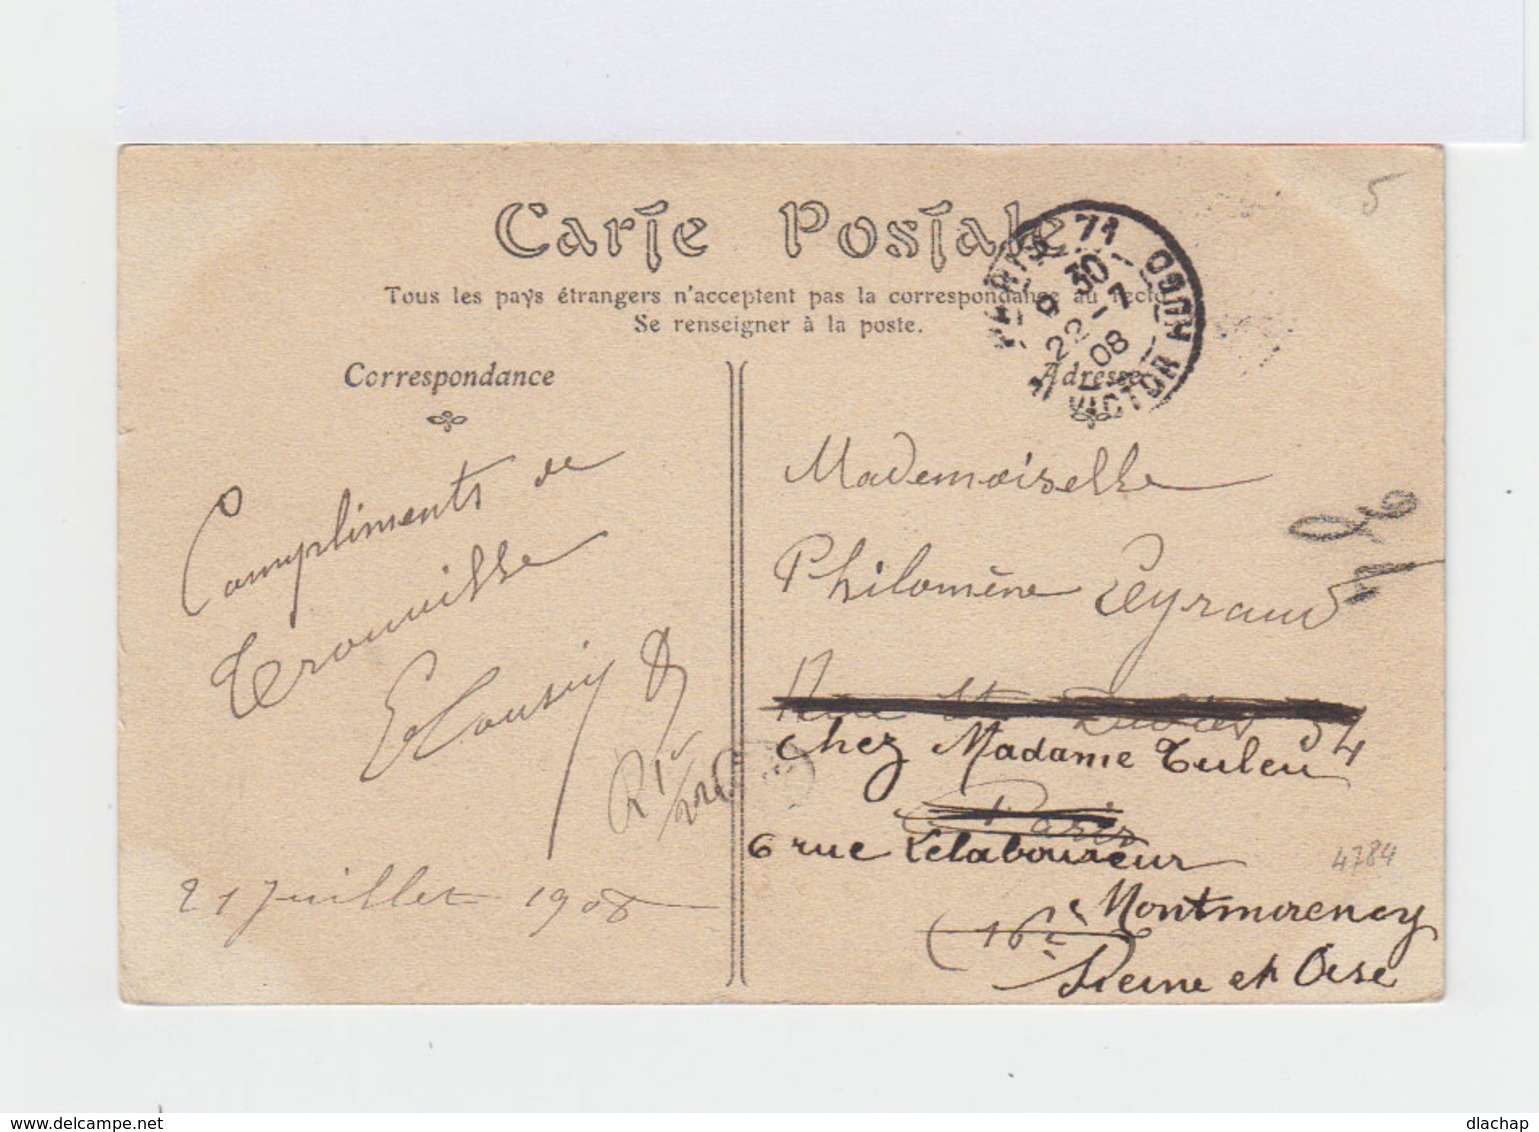 5
Carte Postale
Tous les pays étrangers n'acceptent pas la correspondance au recto
Se renseigner à la poste.
PARIS 71
9 30
22 - 7
08
VICTOR HUGO
Correspondance
Adresse
Compliments de
Trouville
21 Juillet 1908
Mademoiselle
Philomène Peyraud
Rue 54
chez Madame Tuleu
Paris
6 rue Lelaboureur
4784
(16e
Montmorency
Seine et Oise
www.delcampe.net
dlachap